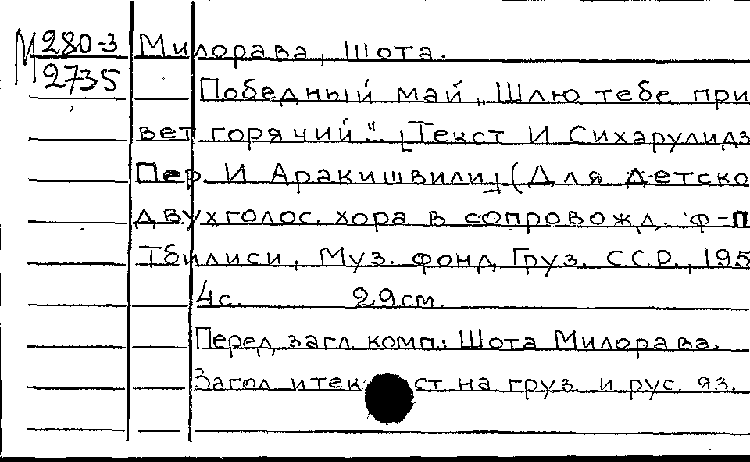 М 280-3 Милорава, Шота.
2735 Победный май „Шлю тебе при
вет горячий". [Текст И Сихарулидз
Пер. И Аракишвили] (Для детско
двухголос. хора в сопровожд. ф-п
Тбилиси, Муз. фонд Груз. С.С.Р., 195
4с. 29см.
Перед загл. комп.: Шота Милорава.
Загол и текст на груз и рус. яз.